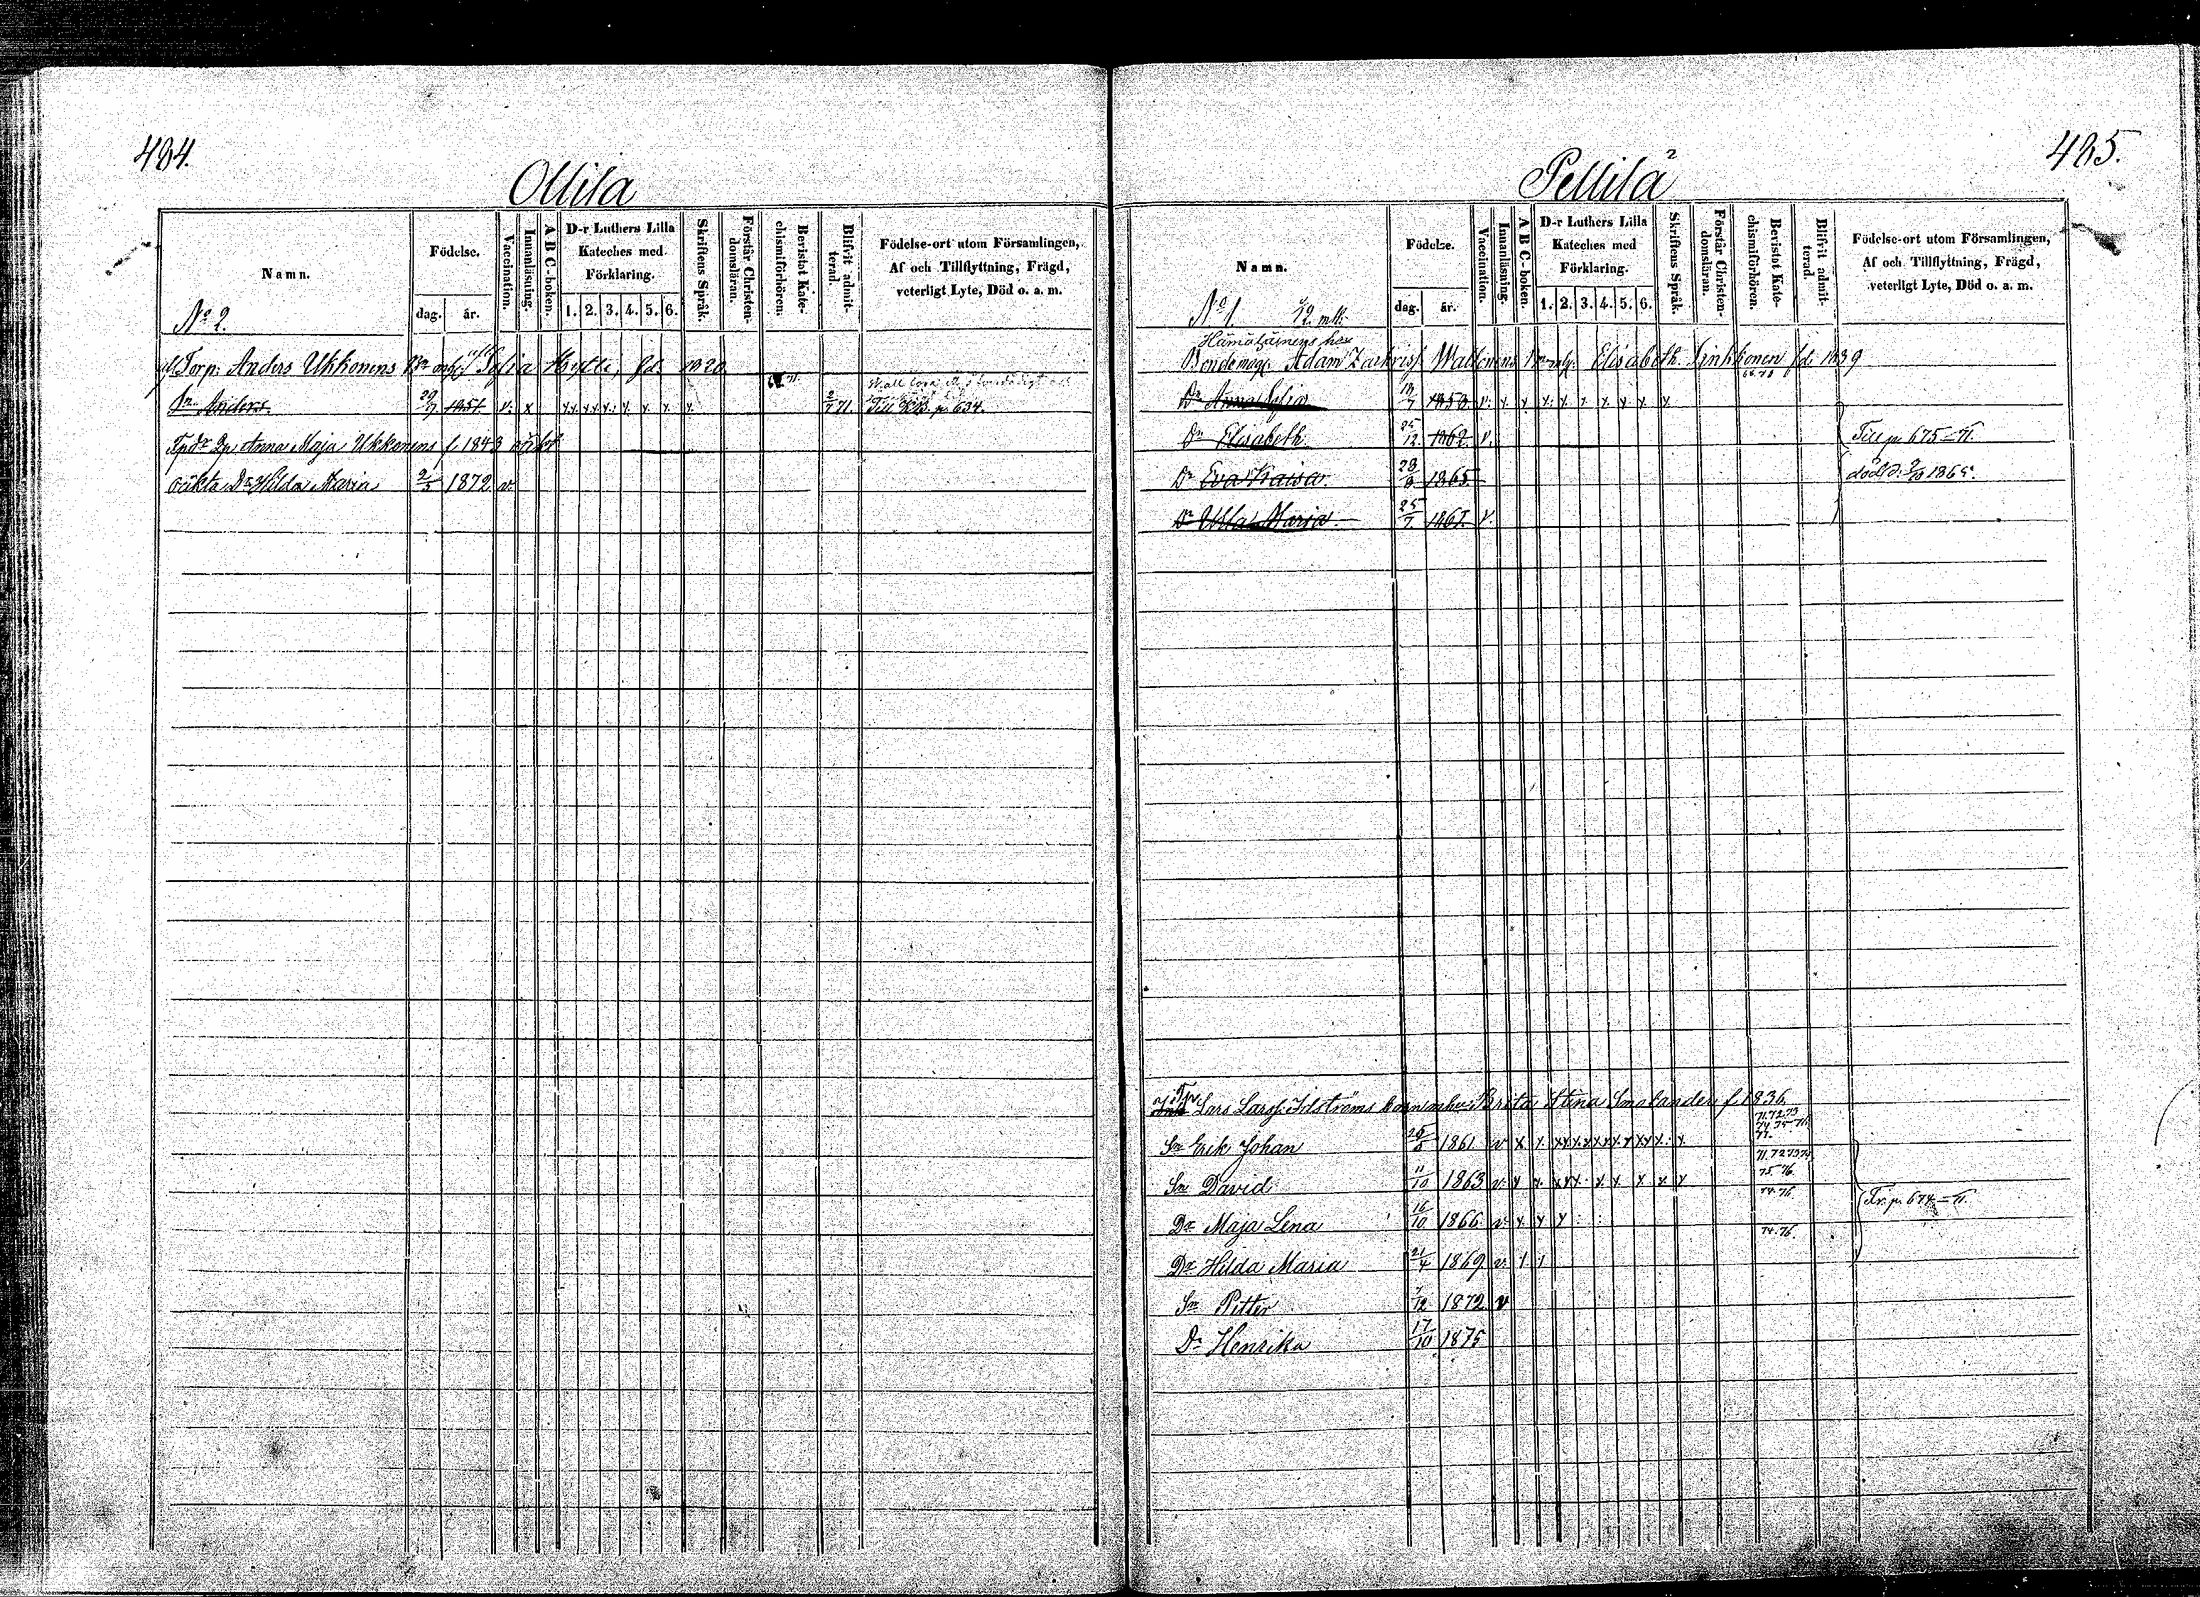 484.
Ollila
Namn.
Födelse.
dag. år.
Vaccination.
Innanläsning.
A B C-boken.
D-r Luthers Lilla
Kateches med
Förklaring.
1. 2. 3. 4. 5. 6.
Skriftens Språk.
Förstår Christen-
domsläran.
Bevistat Kate-
chismiförhören.
Blifvit admit-
terad.
Födelse-ort utom Församlingen,
Af och Tillflyttning, Frägd,
veterligt Lyte, Död o. a. m.
No 2.
Torp: Anders Ukkonens Sofia Hytti, fd. 1820
Sn Anders. 29/7 1851 v. x x x x x x x x x 71. Till p. 634.
Anna Maja Ukkonens f. 1843 oäkt
oäkta Dr Hilda Maria 2/5 1872 v.
485.
Pellilä 2
Namn.
Födelse.
dag. år.
Vaccination.
Innanläsning.
A B C-boken.
D-r Luthers Lilla
Kateches med
Förklaring.
1. 2. 3. 4. 5. 6.
Skriftens Språk.
Förstår Christen-
domsläran.
Bevistat Kate-
chismiförhören.
Blifvit admit-
terad.
Födelse-ort utom Församlingen,
Af och Tillflyttning, Frägd,
veterligt Lyte, Död o. a. m.
No 1. 12 mtl:
Bondemåg. Adam Zachriss. Elisabeth fd. 1839
Dr Anna Sofia v. x x x x x x x x x
Dr Elisabeth 25/12 1862 v. Till p. 675–71.
Dr Eva Kaisa. 1865 död d. 1865.
Dr Ulla Maria 25/7 1867. v.
Lars Larss. Idströms barn m. hu. Brita Stina Smolander f. 1836.
71.72.73
74 75 76
77.
Sn Erik Johan 1861 v x x. x x x x x x x x x x x
71.72 73 74
75 76
Sn David 11/10 1863 v. x x. x x x x x x x x
74.76
Dr Maja Lena 16/10 1866 v. x x x Fr. p. 674–71.
74.76.
Dr Hilda Maria 21/4 1869 v. 1 1
Sn Petter 1872 v
Dr Henrika 17/10 1875